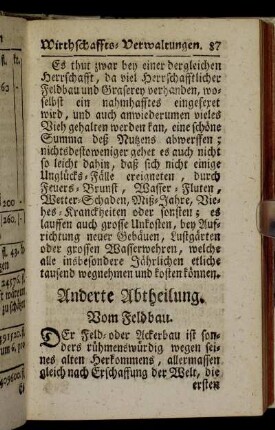 Wirthschaffts-Verwaltungen. 87
Es thut zwar bey einer dergleichen
Herrschafft, da viel Herrschafftlicher
Feldbau und Graserey verhanden, wo-
selbst ein nahmhafftes eingeseret
wird, und auch anwiederumen vieles
Vieh gehalten werden kan, eine schöne
Summa deß Nutzens abwerffen;
nichtsdestoweniger gehet es auch nicht
so leicht dahin, daß sich nicht einige
Unglücks-Fälle ereigneten, durch
Feuers-Brunst, Wasser-Fluten,
Wetter-Schaden, Miß-Jahre, Vie-
hes-Kranckheiten oder sonsten; es
lauffen auch grosse Unkosten, bey Auf-
richtung neuer Gebäuen, Lustgärten
oder grossen Wasserwehren, welche
alle insbesondere Jährlichen etliche
tausend wegnehmen und kosten können.
Anderte Abtheilung.
Vom Feldbau.
DEr Feld- oder Ackerbau ist son-
ders rühmenswürdig wegen sei-
nes alten Herkommens, allermassen
gleich nach Erschaffung der Welt, die
ersten